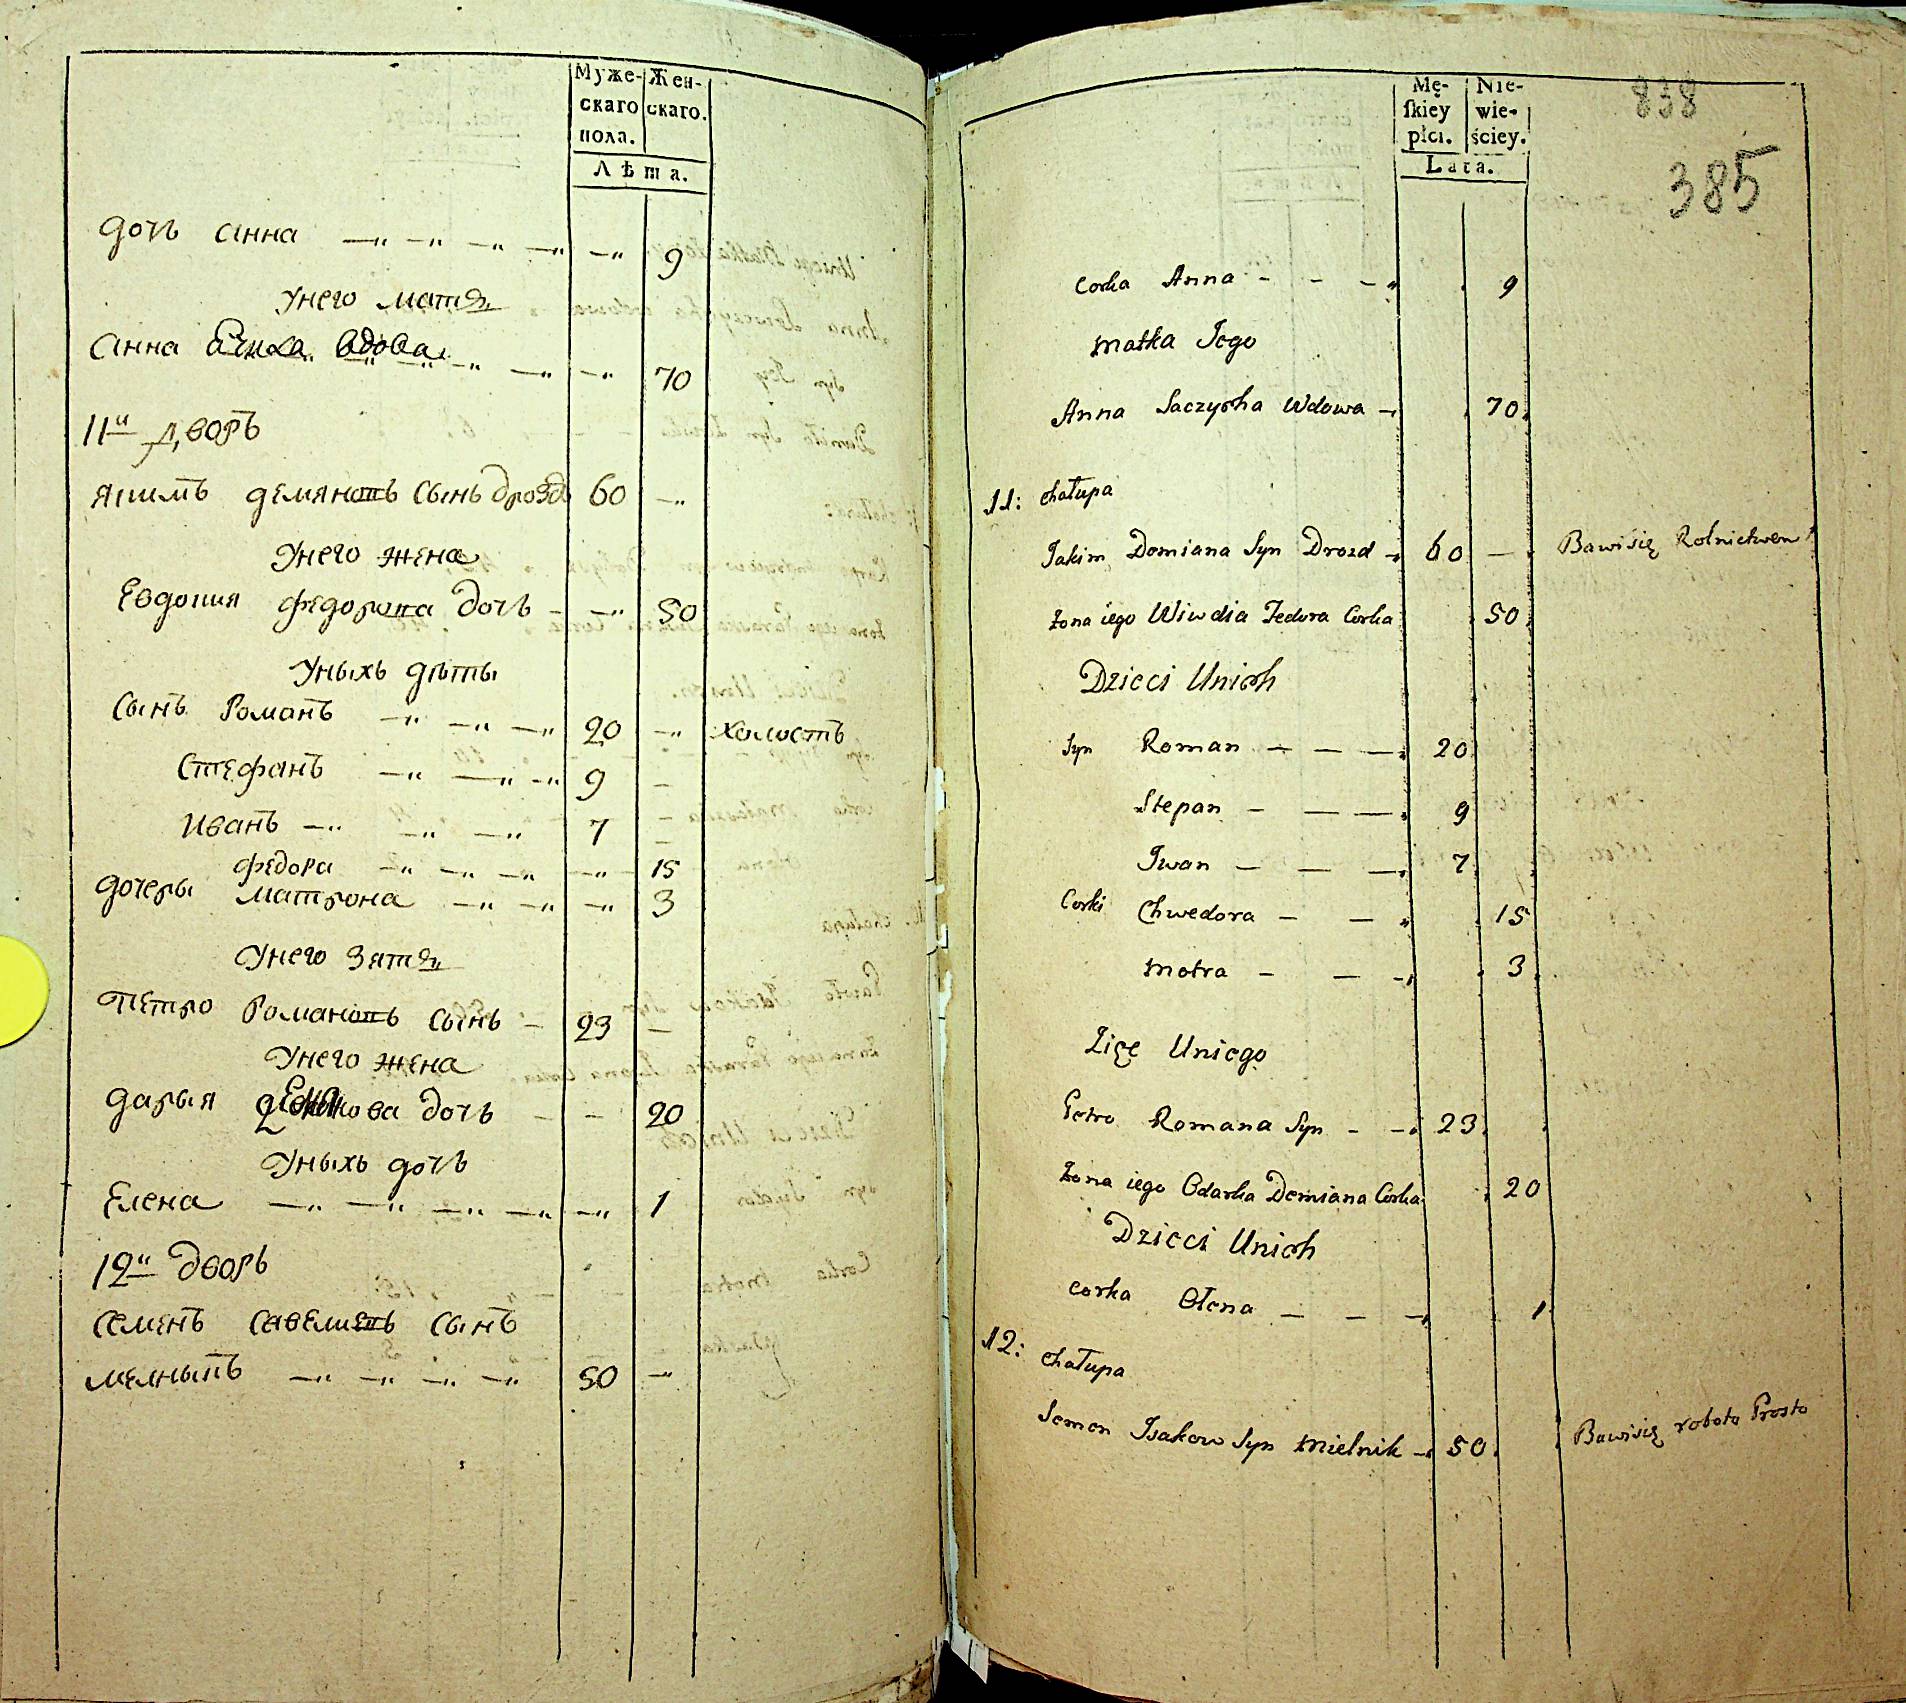 Муже-
скаго
пола.
Жен-
скаго.
Лѣта.
дочь анна 9
унего матя
анна вдова 70
11й дворъ
якимъ демяновъ сынъ дрозд 60
унего жена
Евдокия федорова дочь 50
унихъ дѣты
сынъ Романъ 20 холостъ
Стефанъ 9
иванъ 7
федора 15
дочеры матрона 3
унего зятя
петро Романовъ сынъ 23
унего жена
дарья дочь 20
унихъ дочь
Елена 1
12й дворъ
семенъ сынъ
мелныкъ 50
838
385
Mę-
skiey
płci.
Nie-
wie-
ściey.
Lata.
Corka Anna 9
Matka Jego
Anna Saczycha Wdowa 70
11: Chałupa
Jakim Domiana Syn Drozd 60 Bawi się Rolnictwem
Żona iego Wiwdia Fedora Corka 50
Dzieci Unich
Syn Roman 20
Stepan 9
Iwan 7
Corki Chwedora 15
Motra 3
Zięc Uniego
Petro Romana Syn 23
Żona iego Odarka Demiana Corka 20
Dzieci Unich
Corka Ołena 1
12: Chałupa
Semen Isakow Syn Mielnik 50 Bawi się robota Prosto